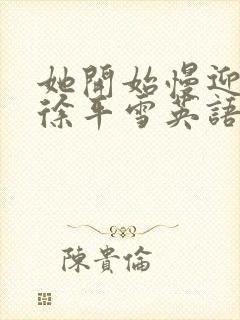 她開始慢迎
徐平雪英語
陳貴倫